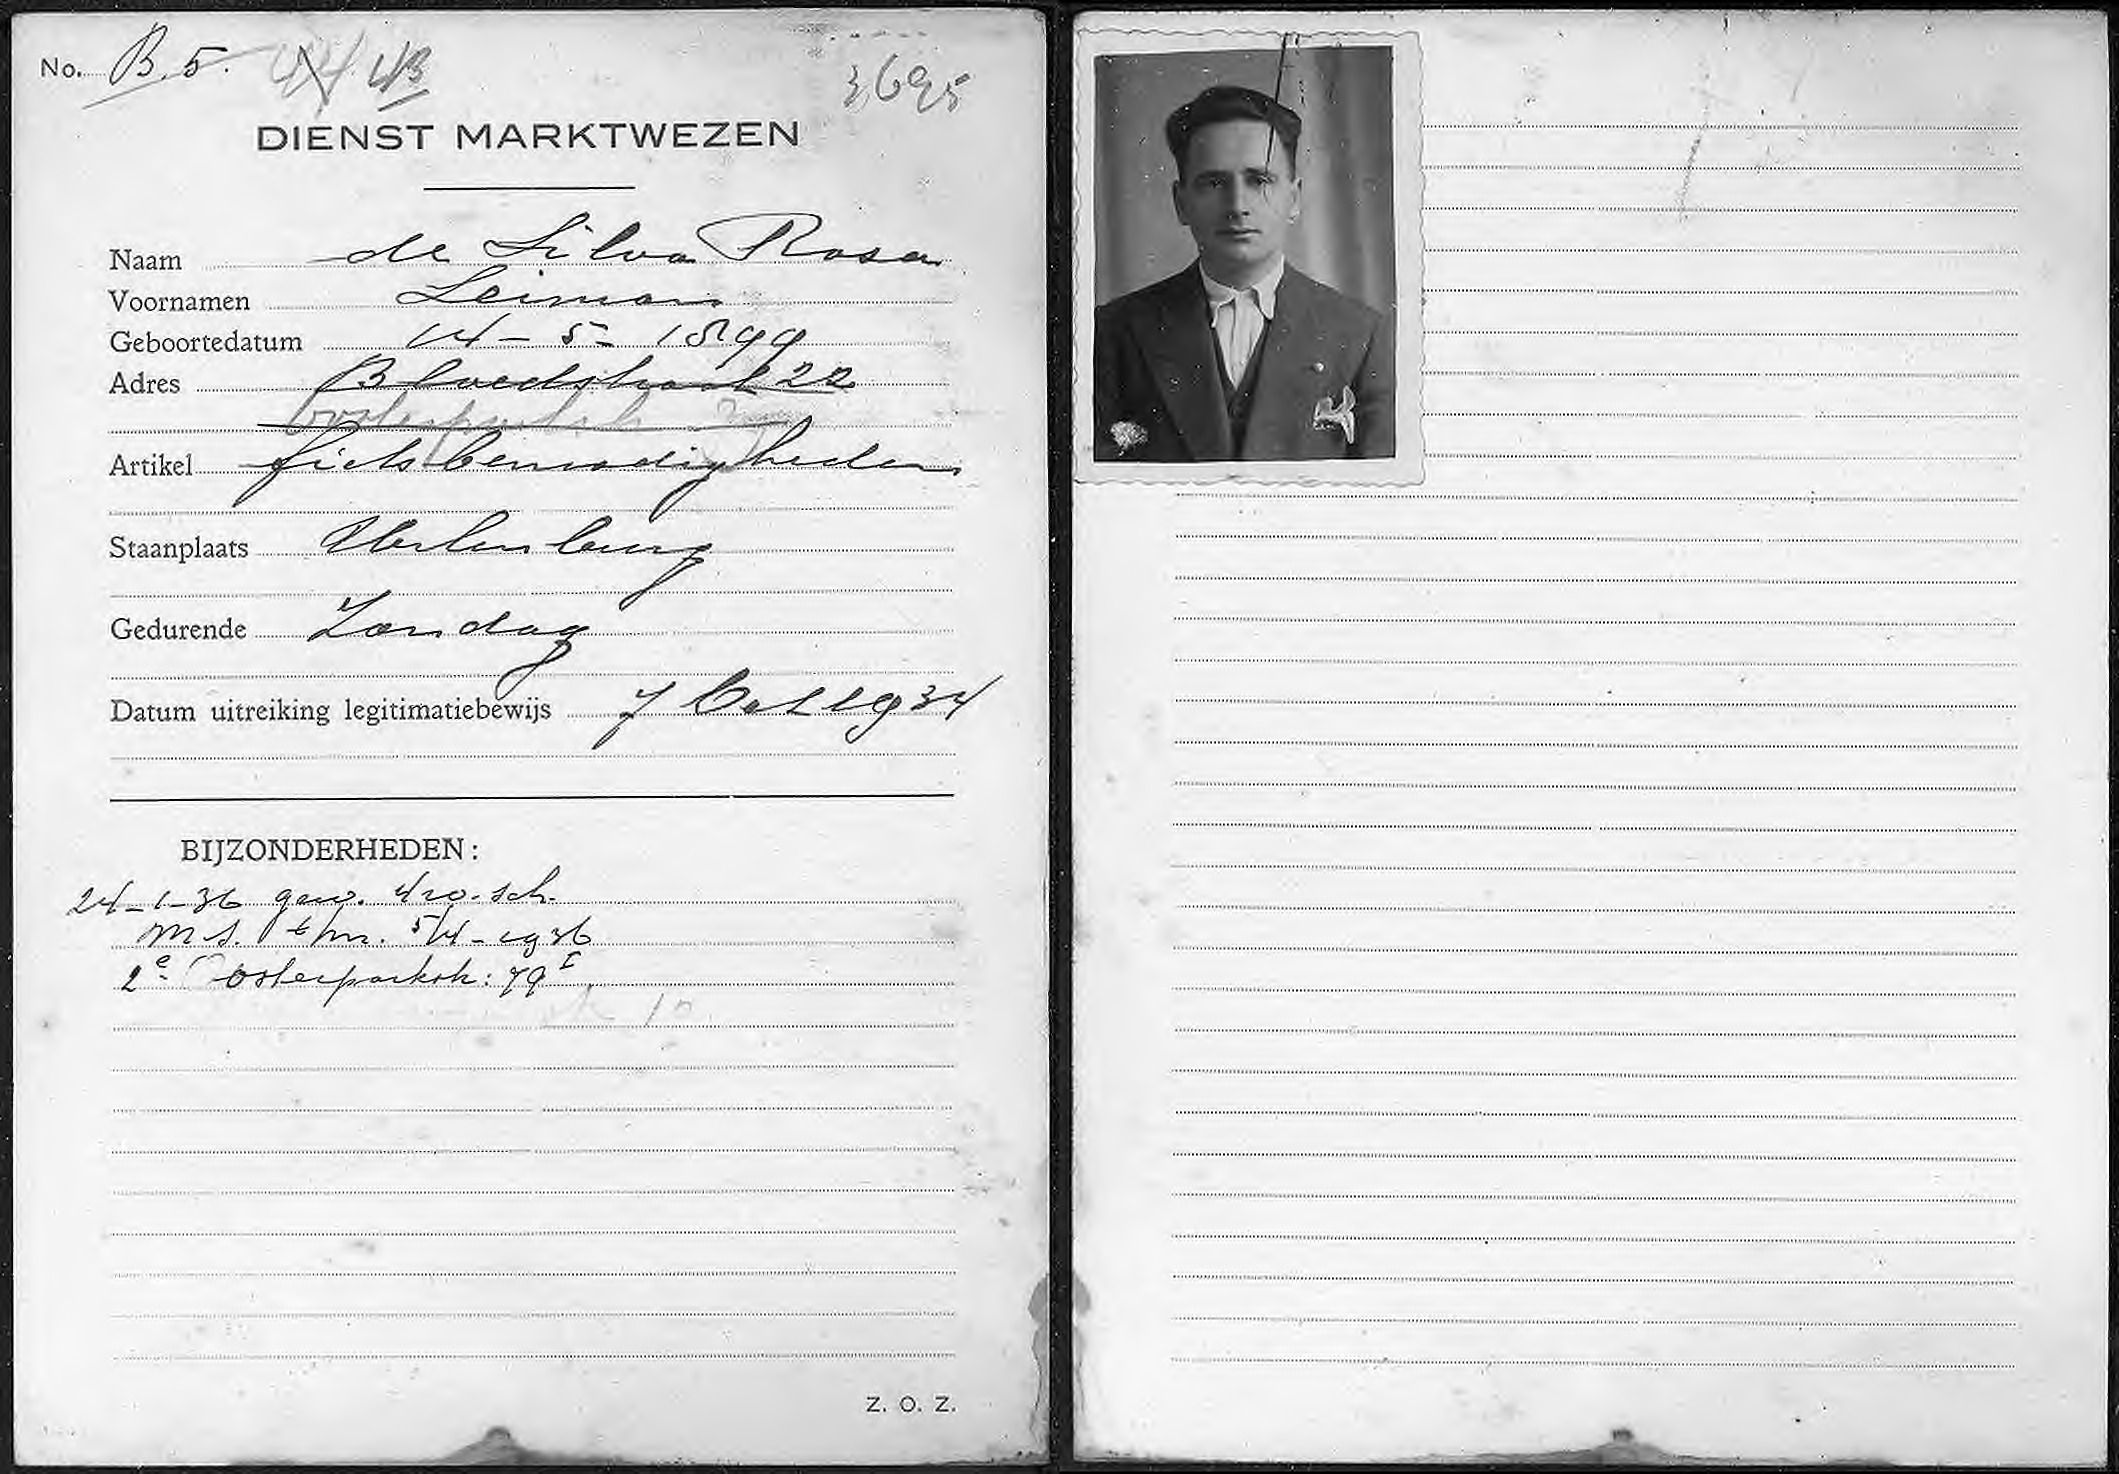 No. B. 5. 44 43
3695
DIENST MARKTWEZEN
Naam de Silva Rosa
Voornamen Leiman
Geboortedatum 14-5-1899
Adres Bloedstraat 22
Oosterparkstr
Artikel fietsbenoodigheden
Staanplaats Uilenburg
Gedurende Zondag
Datum uitreiking legitimatiebewijs 7 Oct 1934
BIJZONDERHEDEN:
24-1-36 gew. sch.
M.S. t/m. 5/4-1936
2e Oosterparkstr: 79 I
Z. O. Z.